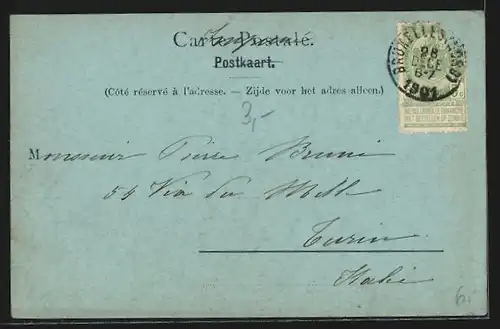 Carte Postale.
Postkaart.
(Côté réservé à l'adresse. — Zijde voor het adres alleen.)
BRUXELLES
28
DECE
6-7
1901
3,-
Monsieur Pierre Bruni
54 Via du
Turin
Italie
6,-